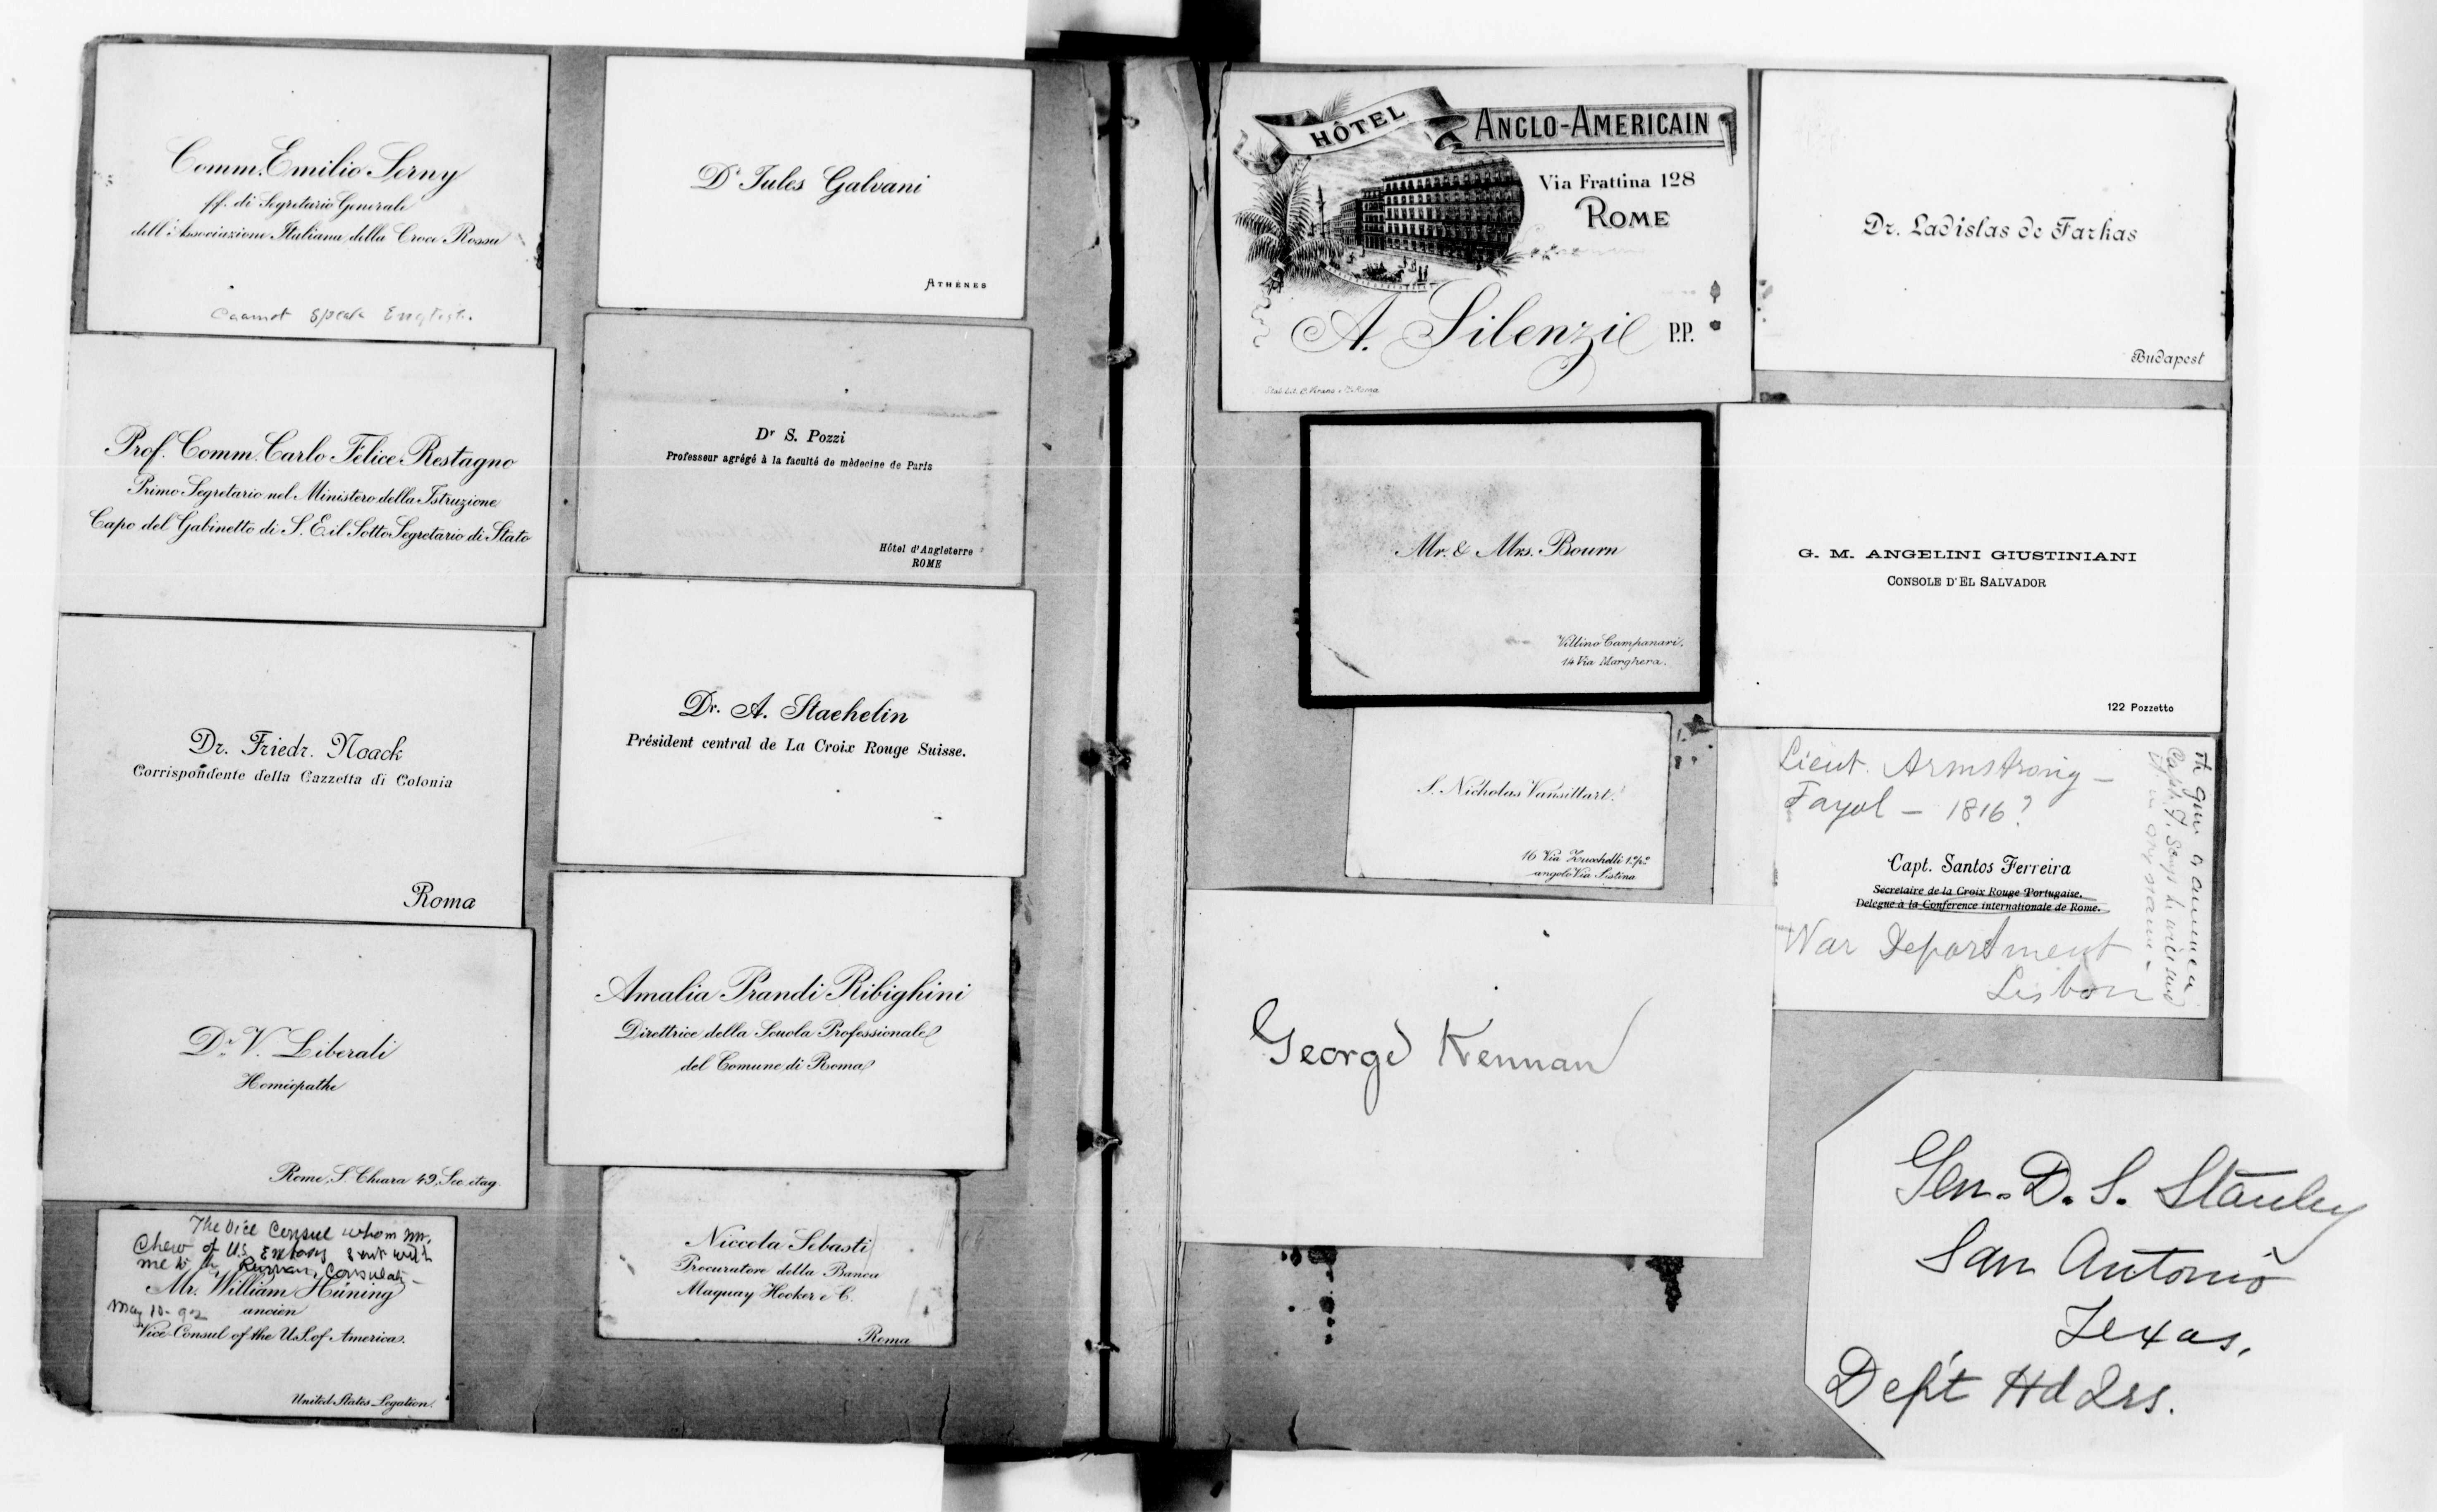 Comm. Emilio Serny
ff. di Segretario Generale
dell'Associazione Italiana della Croce Rossa
Cannot speak English.
Prof. Comm. Carlo Felice Restagno
Primo Segretario nel Ministero della Istruzione
Capo del Gabinetto di S. E. il Sotto Segretario di Stato
Dr. Friedr. Noack
Corrispondente della Gazzetta di Colonia
Roma
Dr. V. Liberali
Homiopathe
Rome, S. Chiara 49, Sec. étag.
The Vice Consul whom Mr.
Chew of U.S. Embassy sent with
me to the Russian Consulate -
Mr. William Hüning
May 10 - 92
ancien
Vice-Consul of the U.S. of America.
United States Legation.
Dr. Jules Galvani
ATHÈNES
Dr S. Pozzi
Professeur agrégé à la faculté de mèdecine de Paris
Hôtel d'Angleterre
ROME
Dr. A. Staehelin
Président central de La Croix Rouge Suisse.
Amalia Prandi Ribighini
Direttrice della Scuola Professionale
del Comune di Roma
Niccola Sebasti
Procuratore della Banca
Maquay Hooker e C.
Roma
HÔTEL ANGLO-AMERICAIN
Via Frattina 128
ROME
A. Silenzi P.P.
Stab. Lit. C. Virano e C. Roma
Dr. Ladislas de Farkas
Budapest
Mr. & Mrs. Bourn
Villino Campanari.
14 Via Marghera.
G. M. ANGELINI GIUSTINIANI
CONSOLE D'EL SALVADOR
122 Pozzetto
S. Nicholas Vansittart.
16 Via Zucchelli 1º pº
angolo Via Sistina
Lieut. Armstrong -
Fayol - 1816?
Capt. Santos Ferreira
Secretaire de la Croix Rouge Portugaise.
Delegue à la Conference internationale de Rome.
War Department
Lisbon
Capt. F. says he will send
George Kennan
Gen. D. S. Stanley
San Antonio
Texas.
Dep't Hd Qrs.